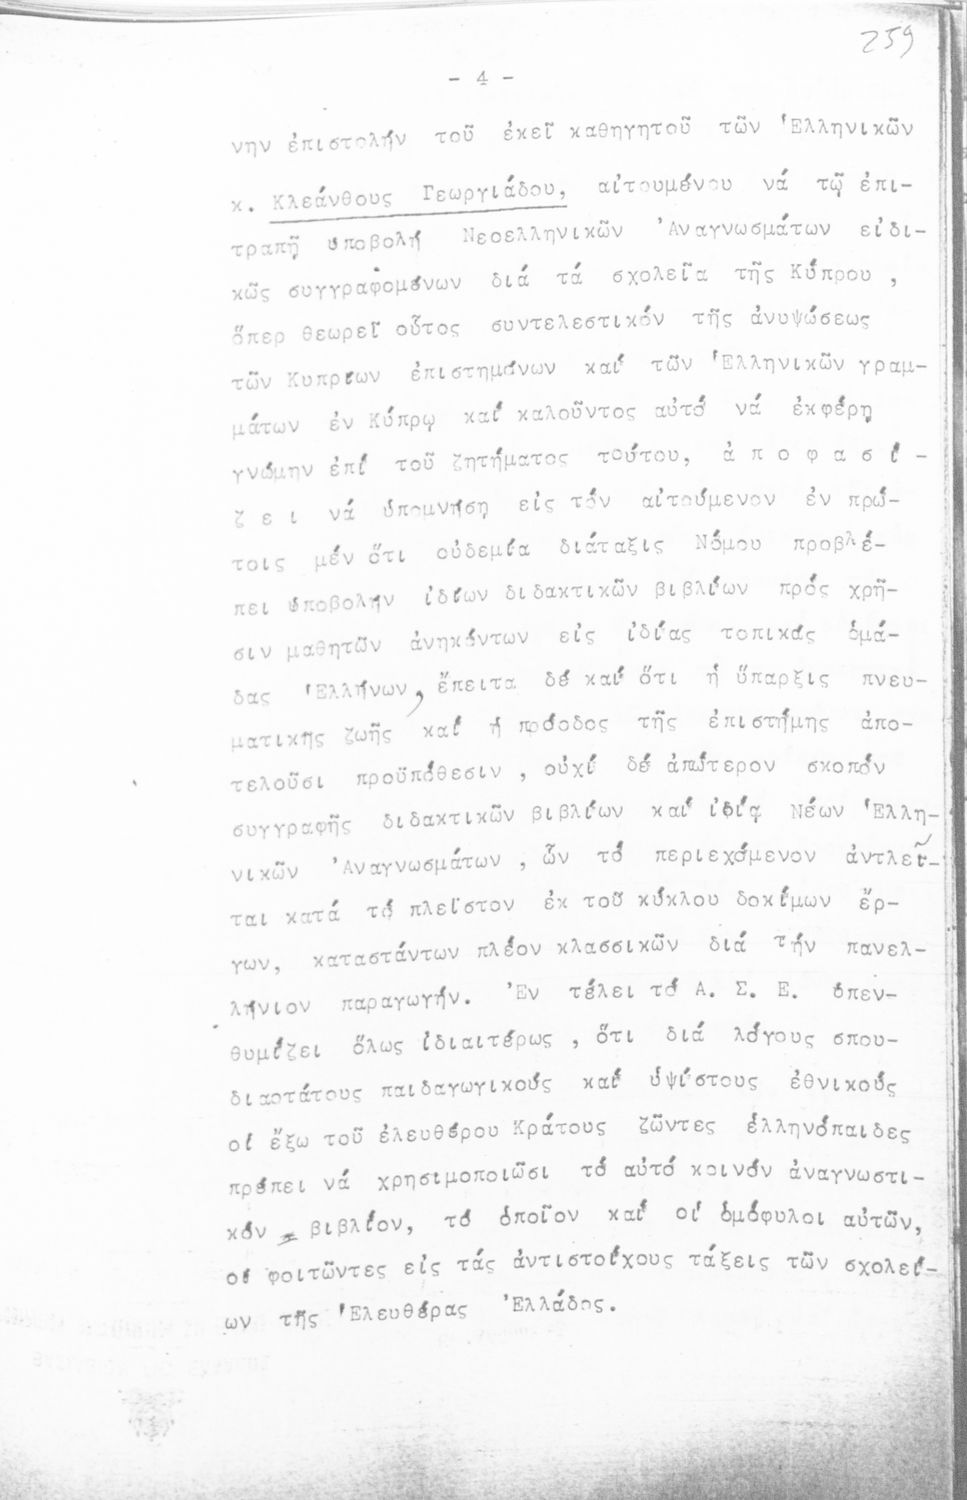 259
- 4 -
νην ἐπιστολήν τοῦ ἐκεῖ καθηγητοῦ τῶν Ἑλληνικῶν
κ. Κλεάνθους Γεωργιάδου, αἰτουμένου νά τῷ ἐπι-
τραπῇ ὑποβολή Νεοελληνικῶν Ἀναγνωσμάτων εἰδι-
κῶς συγγραφομένων διά τά σχολεῖα τῆς Κύπρου ,
ὅπερ θεωρεῖ οὗτος συντελεστικόν τῆς ἀνυψώσεως
τῶν Κυπρίων ἐπιστημόνων καί τῶν Ἑλληνικῶν γραμ-
μάτων ἐν Κύπρῳ καί καλοῦντος αὐτό νά ἐκφέρῃ
γνώμην ἐπί τοῦ ζητήματος τούτου, ἀ π ο φ α σ ί -
ζ ε ι νά ὑπομνήσῃ εἰς τόν αἰτούμενον ἐν πρώ-
τοις μέν ὅτι οὐδεμία διάταξις Νόμου προβλέ-
πει ὑποβολήν ἰδίων διδακτικῶν βιβλίων πρός χρῆ-
σιν μαθητῶν ἀνηκόντων εἰς ἰδίας τοπικάς ὁμά-
δας Ἑλλήνων, ἔπειτα δέ καί ὅτι ἡ ὕπαρξις πνευ-
ματικῆς ζωῆς καί ἡ πρόοδος τῆς ἐπιστήμης ἀπο-
τελοῦσι προϋπόθεσιν , οὐχί δέ ἀπώτερον σκοπόν
συγγραφῆς διδακτικῶν βιβλίων καί ἰδίᾳ Νέων Ἑλλη-
νικῶν Ἀναγνωσμάτων , ὧν τό περιεχόμενον ἀντλεῖ-
ται κατά τό πλεῖστον ἐκ τοῦ κύκλου δοκίμων ἔρ-
γων, καταστάντων πλέον κλασσικῶν διά τήν πανελ-
λήνιον παραγωγήν. Ἐν τέλει τό Α. Σ. Ε. ὑπεν-
θυμίζει ὅλως ἰδιαιτέρως , ὅτι διά λόγους σπου-
διαοτάτους παιδαγωγικούς καί ὑψίστους ἐθνικούς
οἱ ἔξω τοῦ ἐλευθέρου Κράτους ζῶντες ἑλληνόπαιδες
πρέπει νά χρησιμοποιῶσι τό αὐτό κοινόν ἀναγνωστι-
κόν βιβλίον, τό ὁποῖον καί οἱ ὁμόφυλοι αὐτῶν,
οἱ φοιτῶντες εἰς τάς ἀντιστοίχους τάξεις τῶν σχολεί-
ων τῆς Ἐλευθέρας Ἑλλάδος.